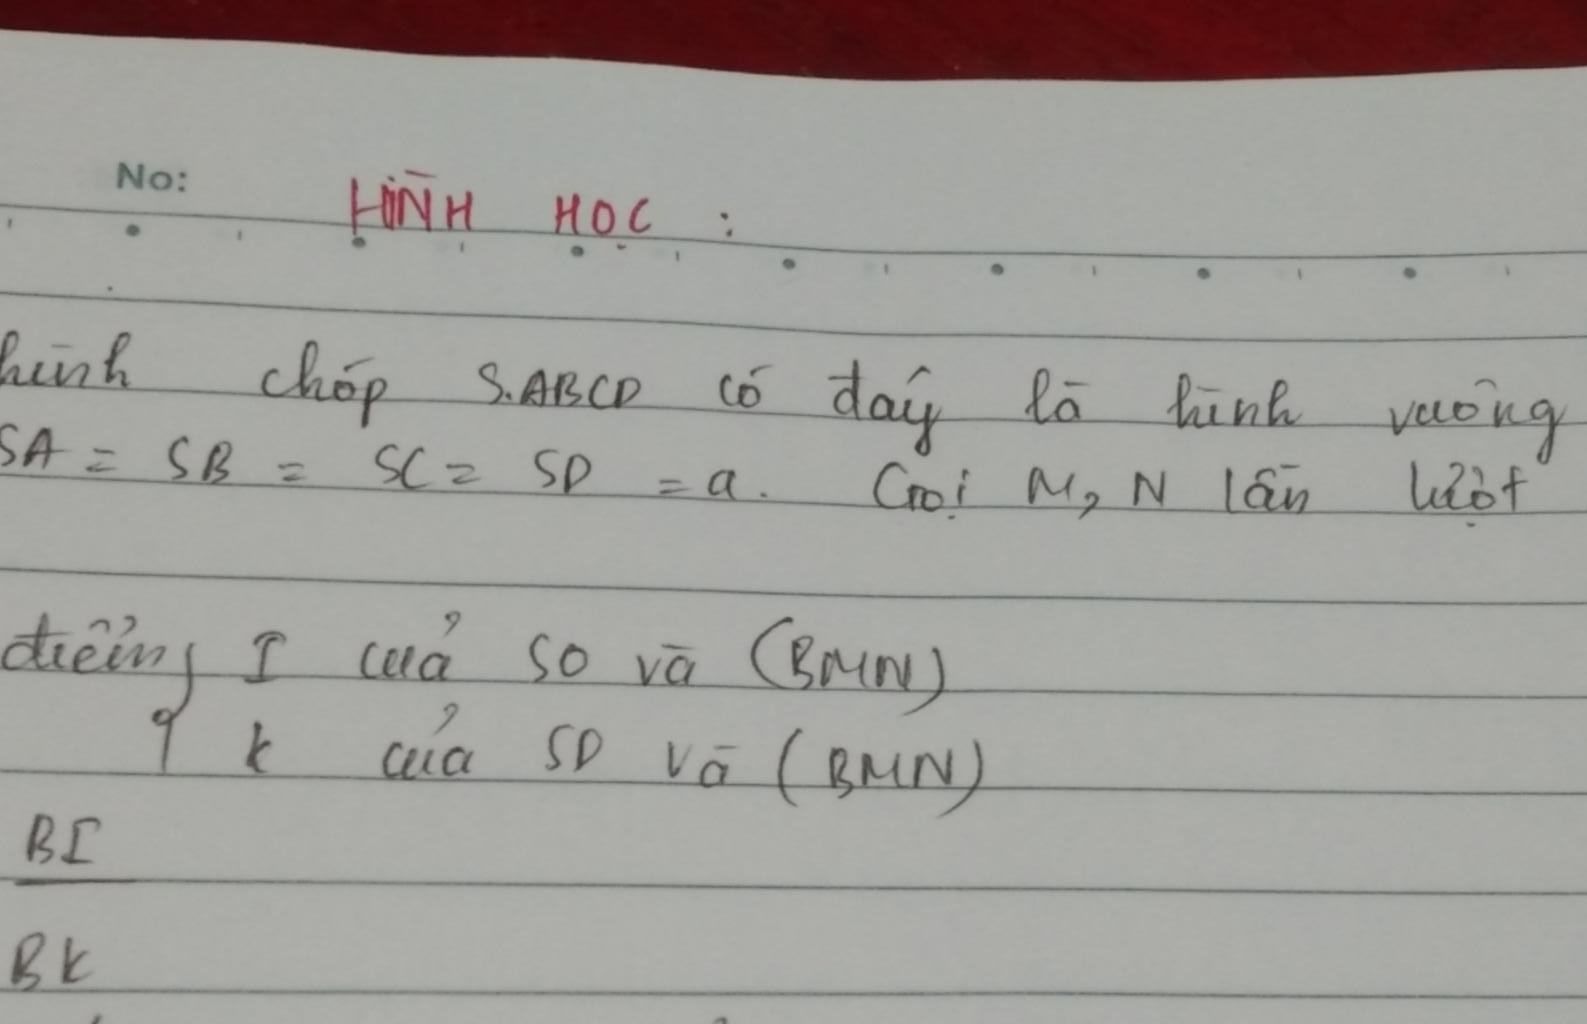 No:
HÌNH HỌC :
hình chóp S.ABCD có đáy là hình vuông
SA = SB = SC = SD = a. Gọi M, N lần lượt
điểm I của SO và (BMN)
K của SD và (BMN)
BI
BK